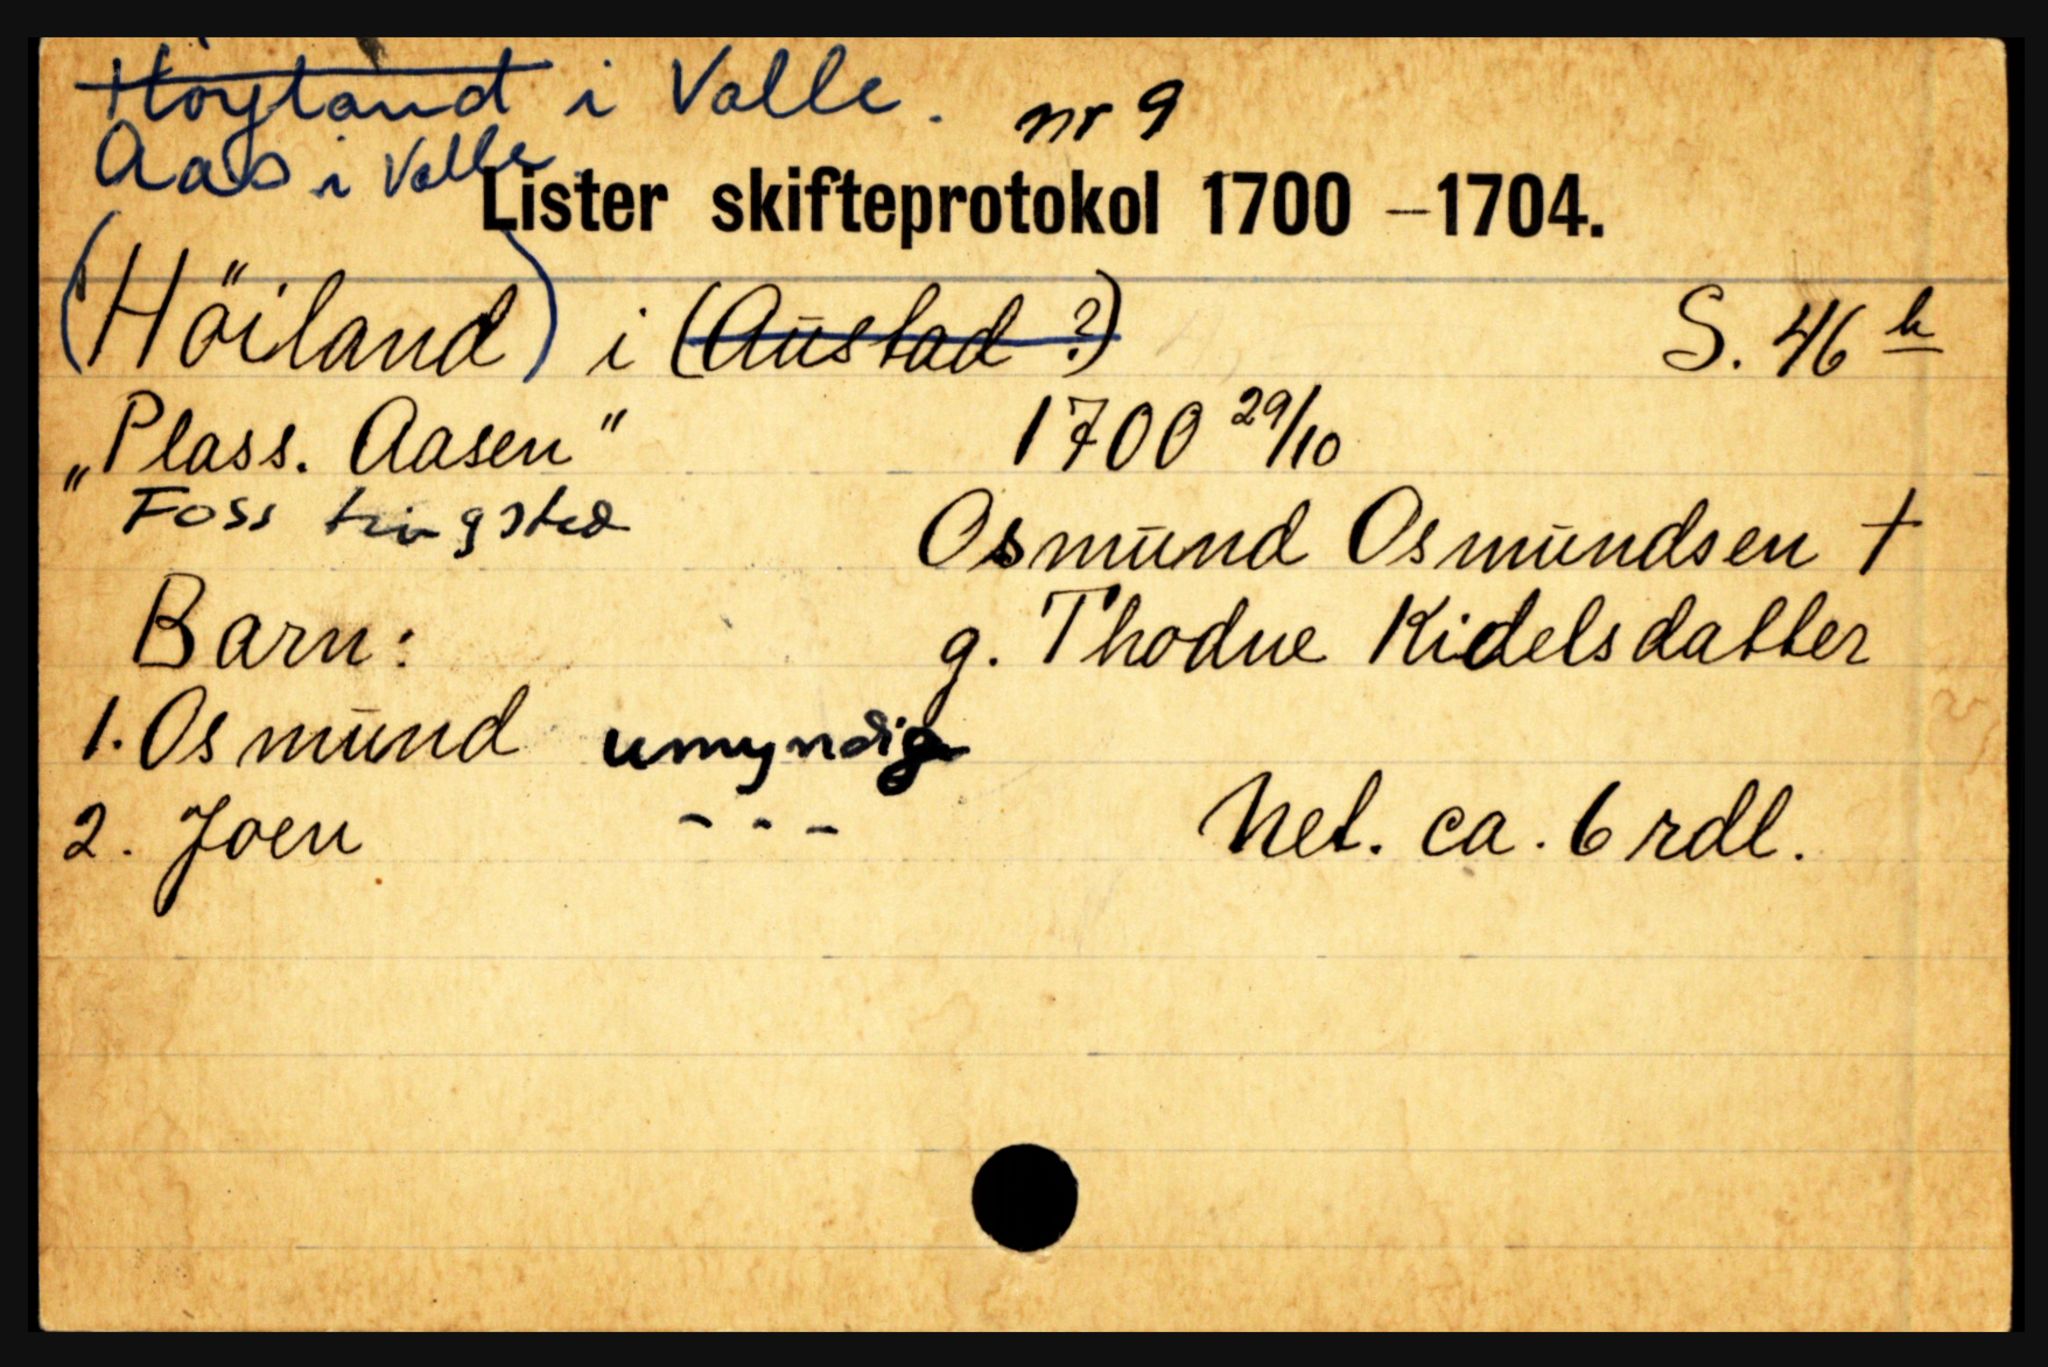 Höyland i Valle. nr 9
Aas i Valle
Lister skifteprotokol 1700 –1704.
(Höiland) i (Austad ?) S. 46 b
„Plass. Aasen" 1700 29/10
Foss tingsted
Osmund Osmundsen †
Barn: g. Thodne Kidelsdatter
1. Osmund umyndig
2. Joen - - - Net. ca. 6 rdl.